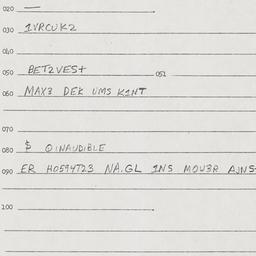 020 —
030 1VRCUK2
040
050 BET2VES+ 051
060 MAX3 DEK UMS K1NT
070
080 $ OINAUDIBLE
090 ER H0594T23 NA.GL 1NS MOU3R AJNS
100